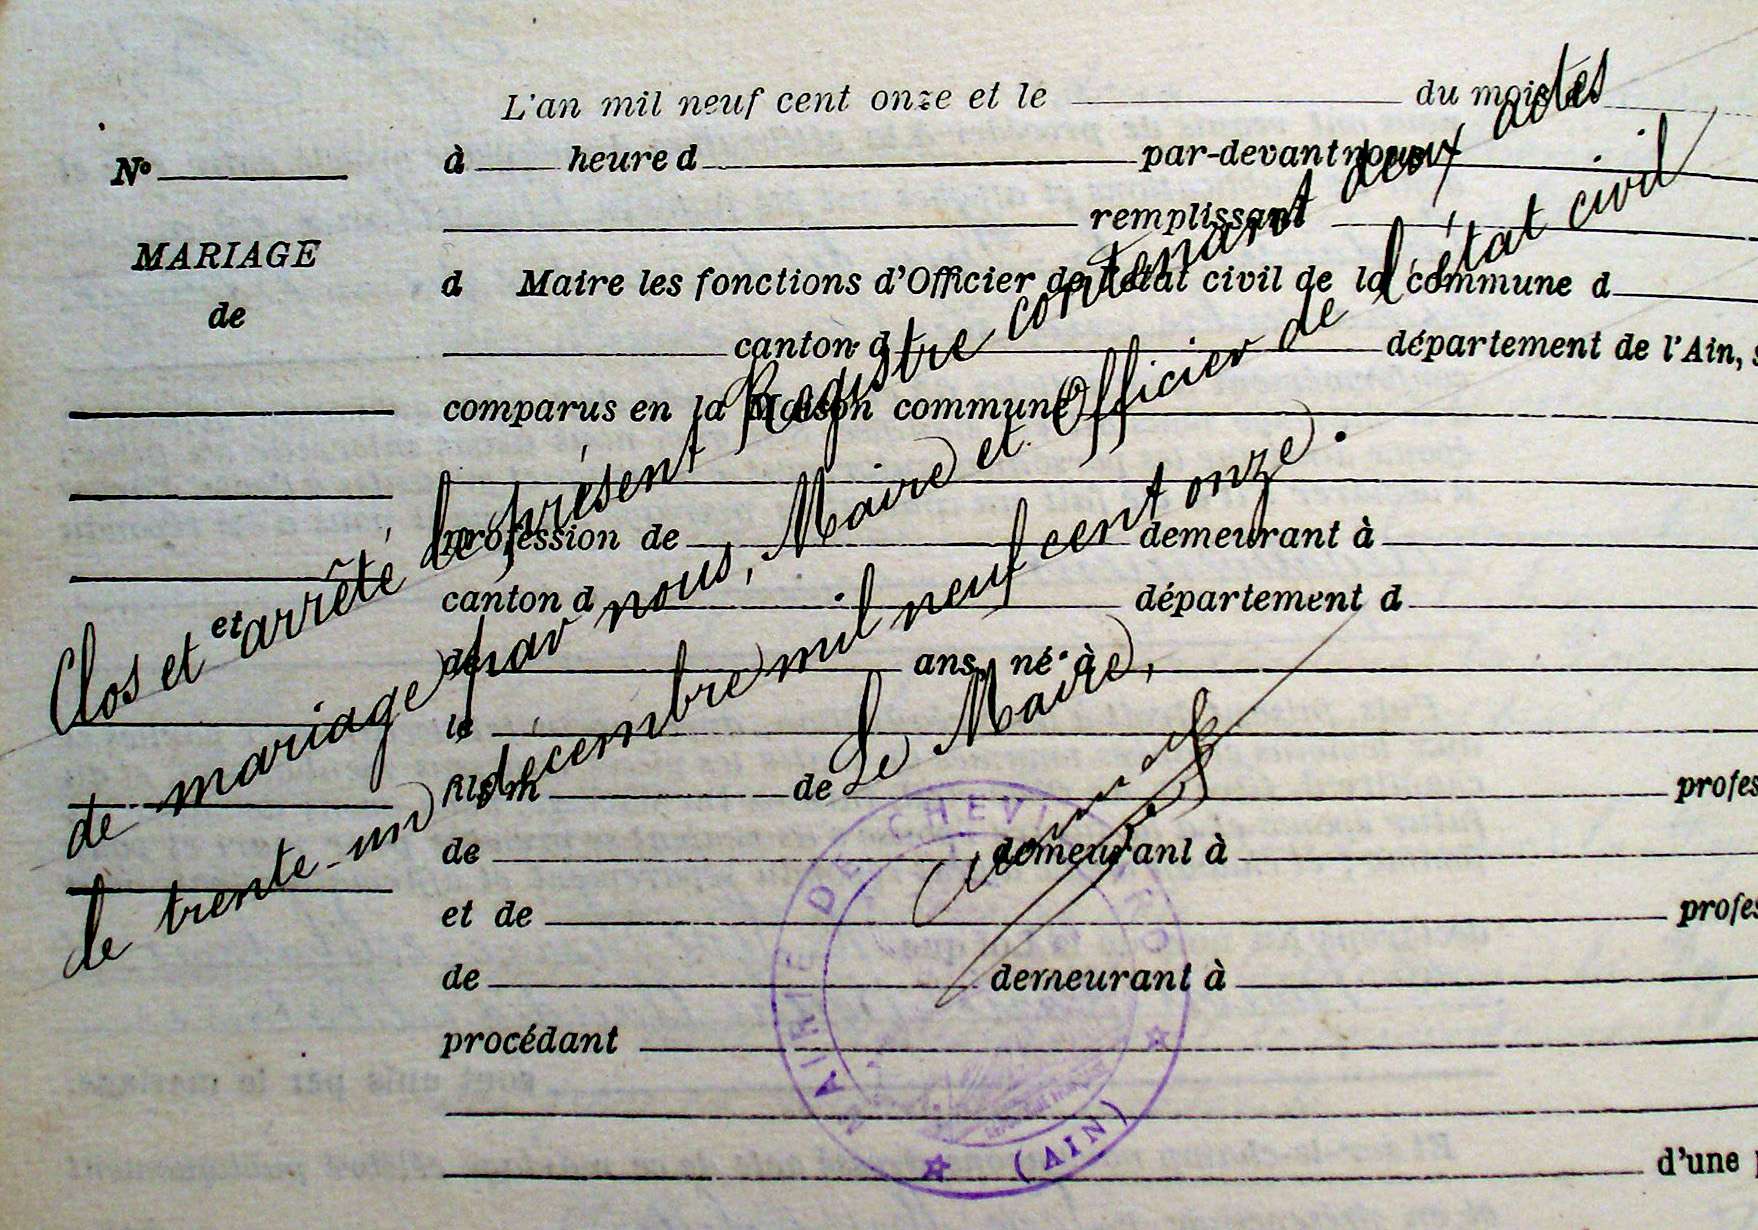 L'an mil neuf cent onze et le du mois d
à heure d par-devant nous
remplissant
d Maire les fonctions d'Officier de l'état civil de la commune d
canton d département de l'Ain, s
comparus en la Maison commune
profession de demeurant à
canton d département d
de ans, né à
le
fils m de profes
de demeurant à
et de profes
de demeurant à
procédant
d'une p
N°
MARIAGE
de
Clos et et arrêté le présent Registre contenant deux actes
de mariage par nous, Maire et Officier de l'état civil
le trente-un décembre mil neuf cent onze.
Le Maire,
MAIRIE DE CHEVROUX
(AIN)